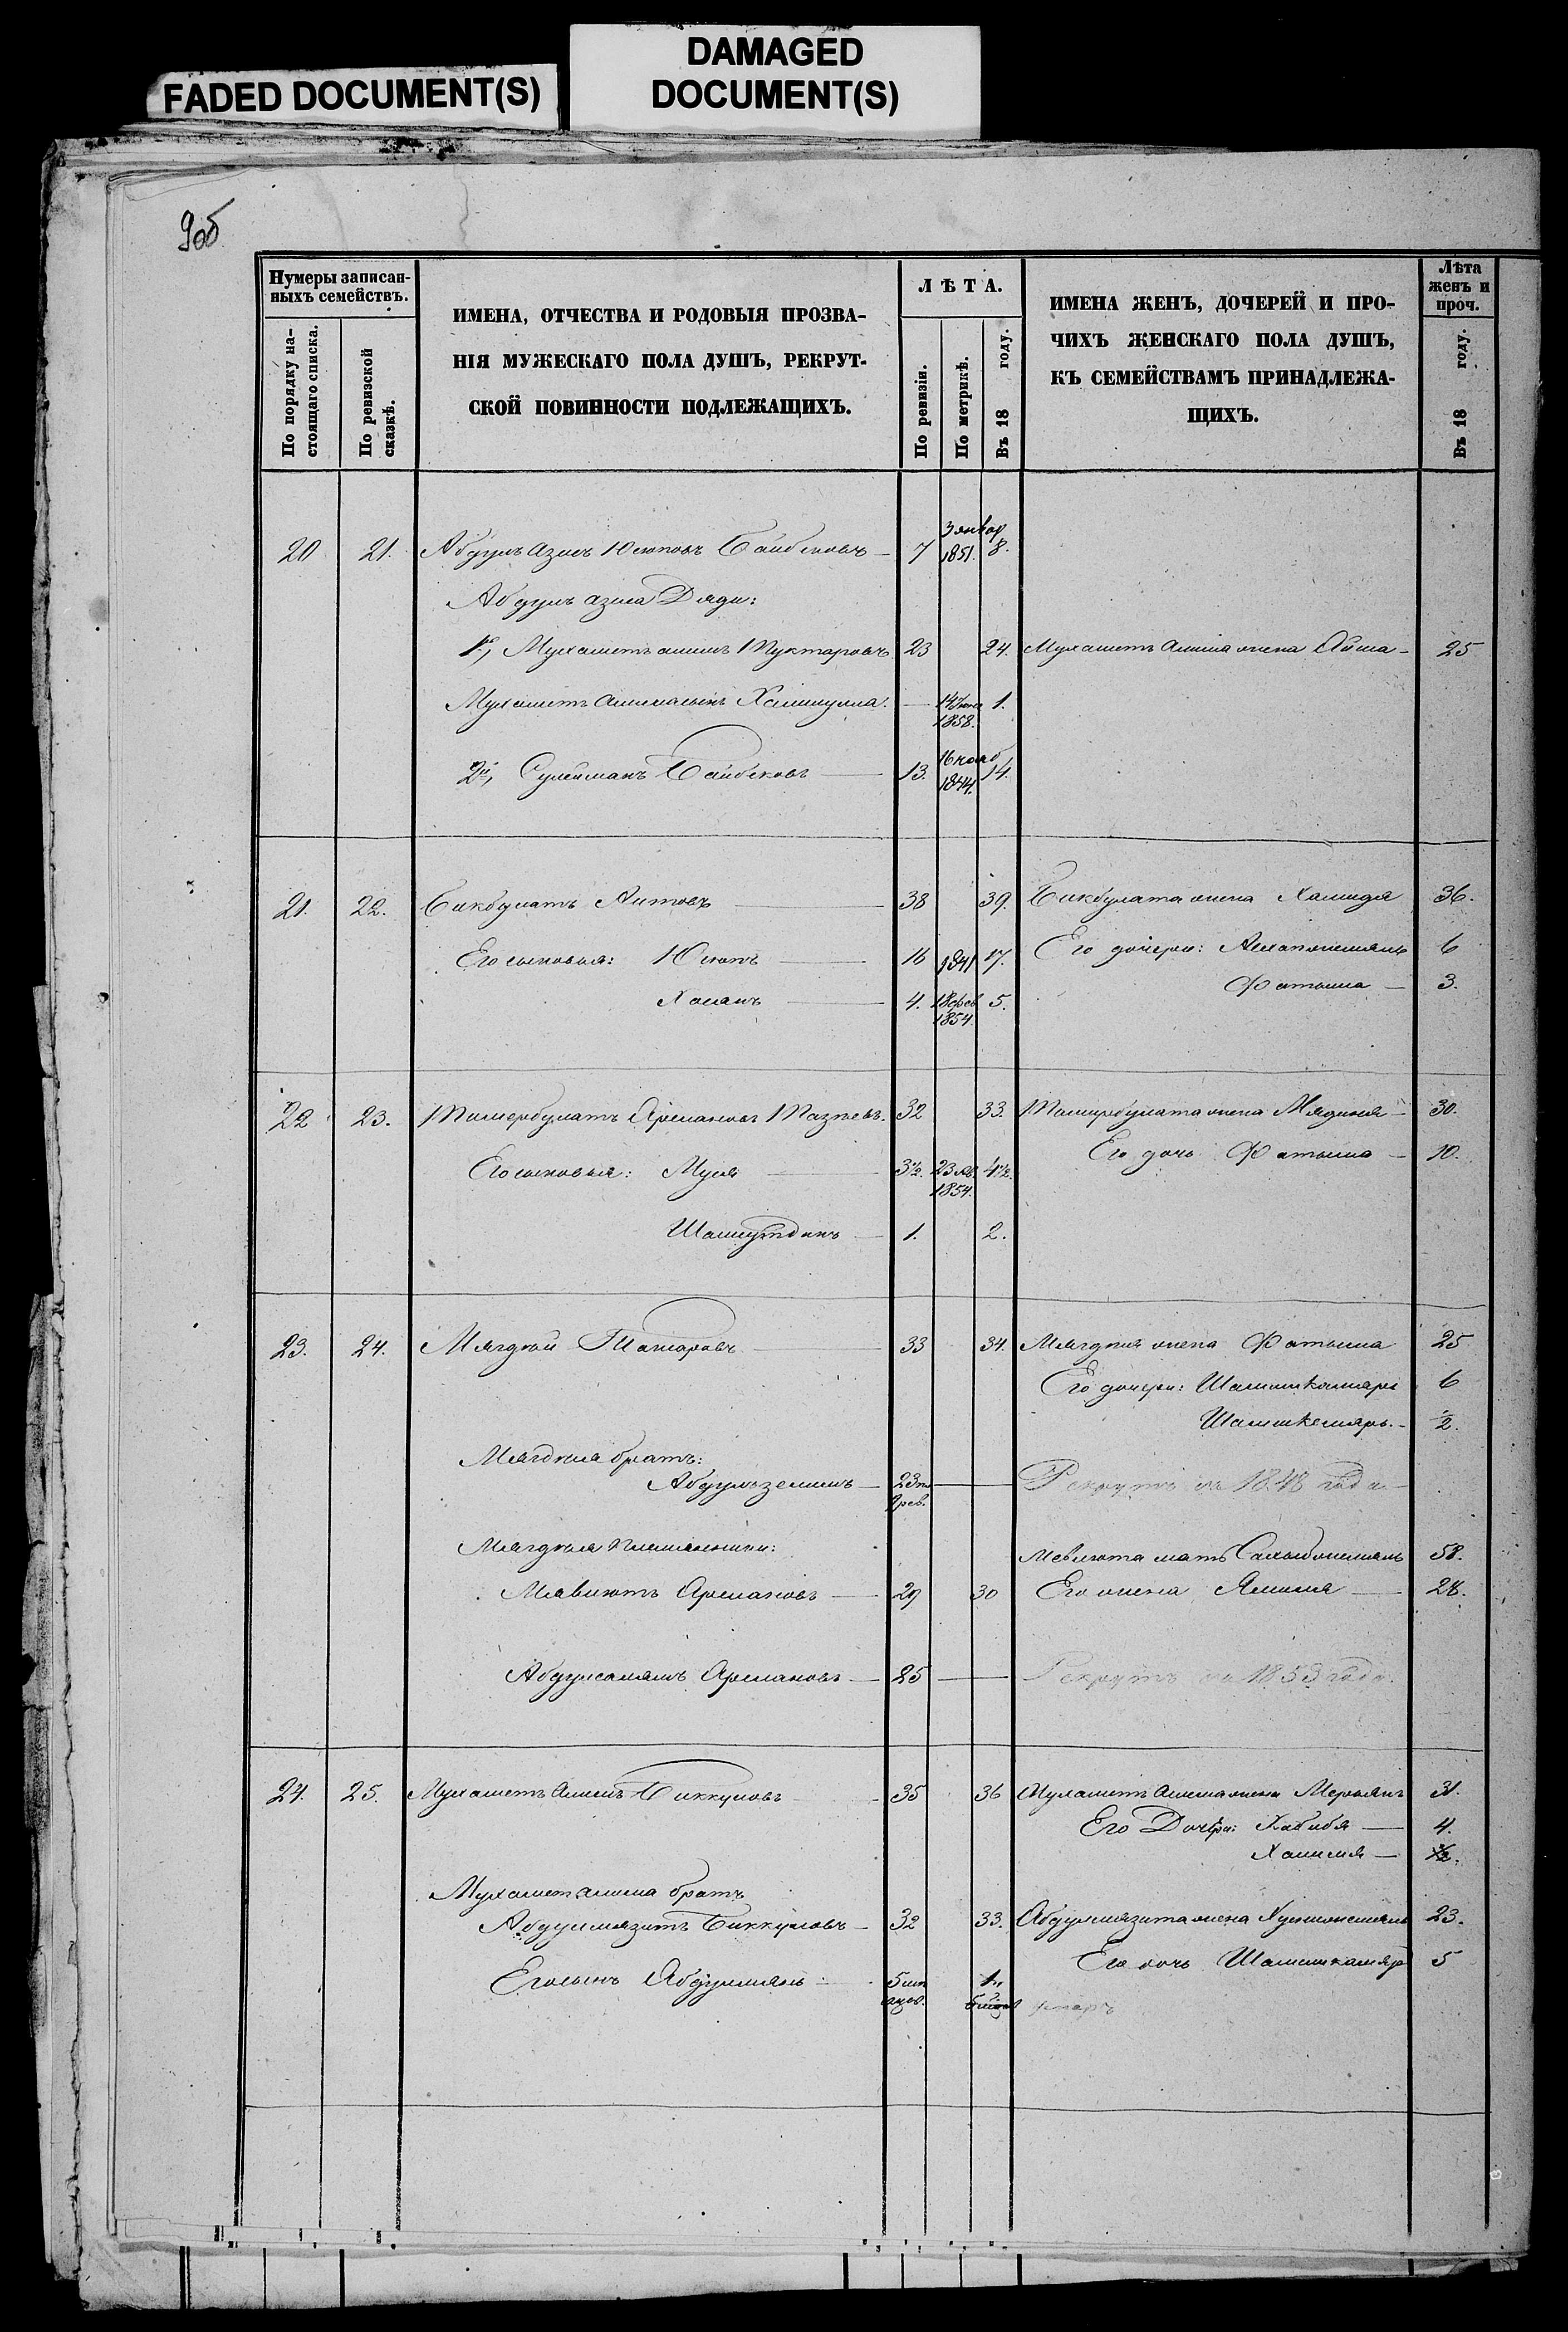 FADED DOCUMENT(S)
DAMAGED
DOCUMENT(S)
9об
Нумеры записан-
ныхъ семействъ.
По порядку на-
стоящаго списка.
По ревизской
сказкѣ.
ИМЕНА, ОТЧЕСТВА И РОДОВЫЯ ПРОЗВА-
НІЯ МУЖЕСКАГО ПОЛА ДУШЪ, РЕКРУТ-
СКОЙ ПОВИННОСТИ ПОДЛЕЖАЩИХЪ.
ЛѢТА.
По ревизіи.
По метрикѣ.
Въ 18 году.
ИМЕНА ЖЕНЪ, ДОЧЕРЕЙ И ПРО-
ЧИХЪ ЖЕНСКАГО ПОЛА ДУШЪ,
КЪ СЕМЕЙСТВАМЪ ПРИНАДЛЕЖА-
ЩИХЪ.
Лѣта
женъ и
проч.
Въ 18 году.
20 21. Абдулъ Азисъ Юсюповъ Баибековъ 7 3 январ 1851. 8.
Абдулъ азиса Дяди:
1й, Мухаметъ алимъ Муктаровъ 23 24. Мухаметъ Алима жена Айша 25
Мухаметъ Алима сынъ 1858. 1.
2й, Сулейманъ Баибековъ 13. 16 нояб 1844. 14.
21. 22. Бикбулатъ Аитовъ 38 39. Бикбулата жена Халидя 36.
Его сыновья: Юсюпъ 16 1841 17. Его дочери: 6
Хасанъ 4. 18 фев 1854. 5. Фатыма 3.
22 23. Темербулатъ Арслановъ 32 33. Темирбулата жена Мядиня 30.
Его сыновья: Муся 3½. 23 1854. 4½. Его дочь Фатыма 10.
1. 2.
23. 24. Мягдѣй 33 34. жена Фатыма 25
Его дочери: Шамсикамаръ 6
Шамскемяръ. ½.
братъ:
23 Рекрутъ съ 1848 года
племянники:
мать 58.
Мявлютъ Арслановъ 29 30 Его жена 28.
Абдулсалямъ Арслановъ 25 Рекрутъ съ 1853 года.
24. 25. Мухаметъ Алимъ Биккуловъ 35 36 Мухаметъ Алима жена Мерьямъ 31.
Его Дочери: Хабибя 4.
Мухамет алима братъ
Абдулмязитъ Биккуловъ 32 33. Абдулмязита жена 23.
Его сынъ 5 Его дочь Шамсикамяр 5
умеръ